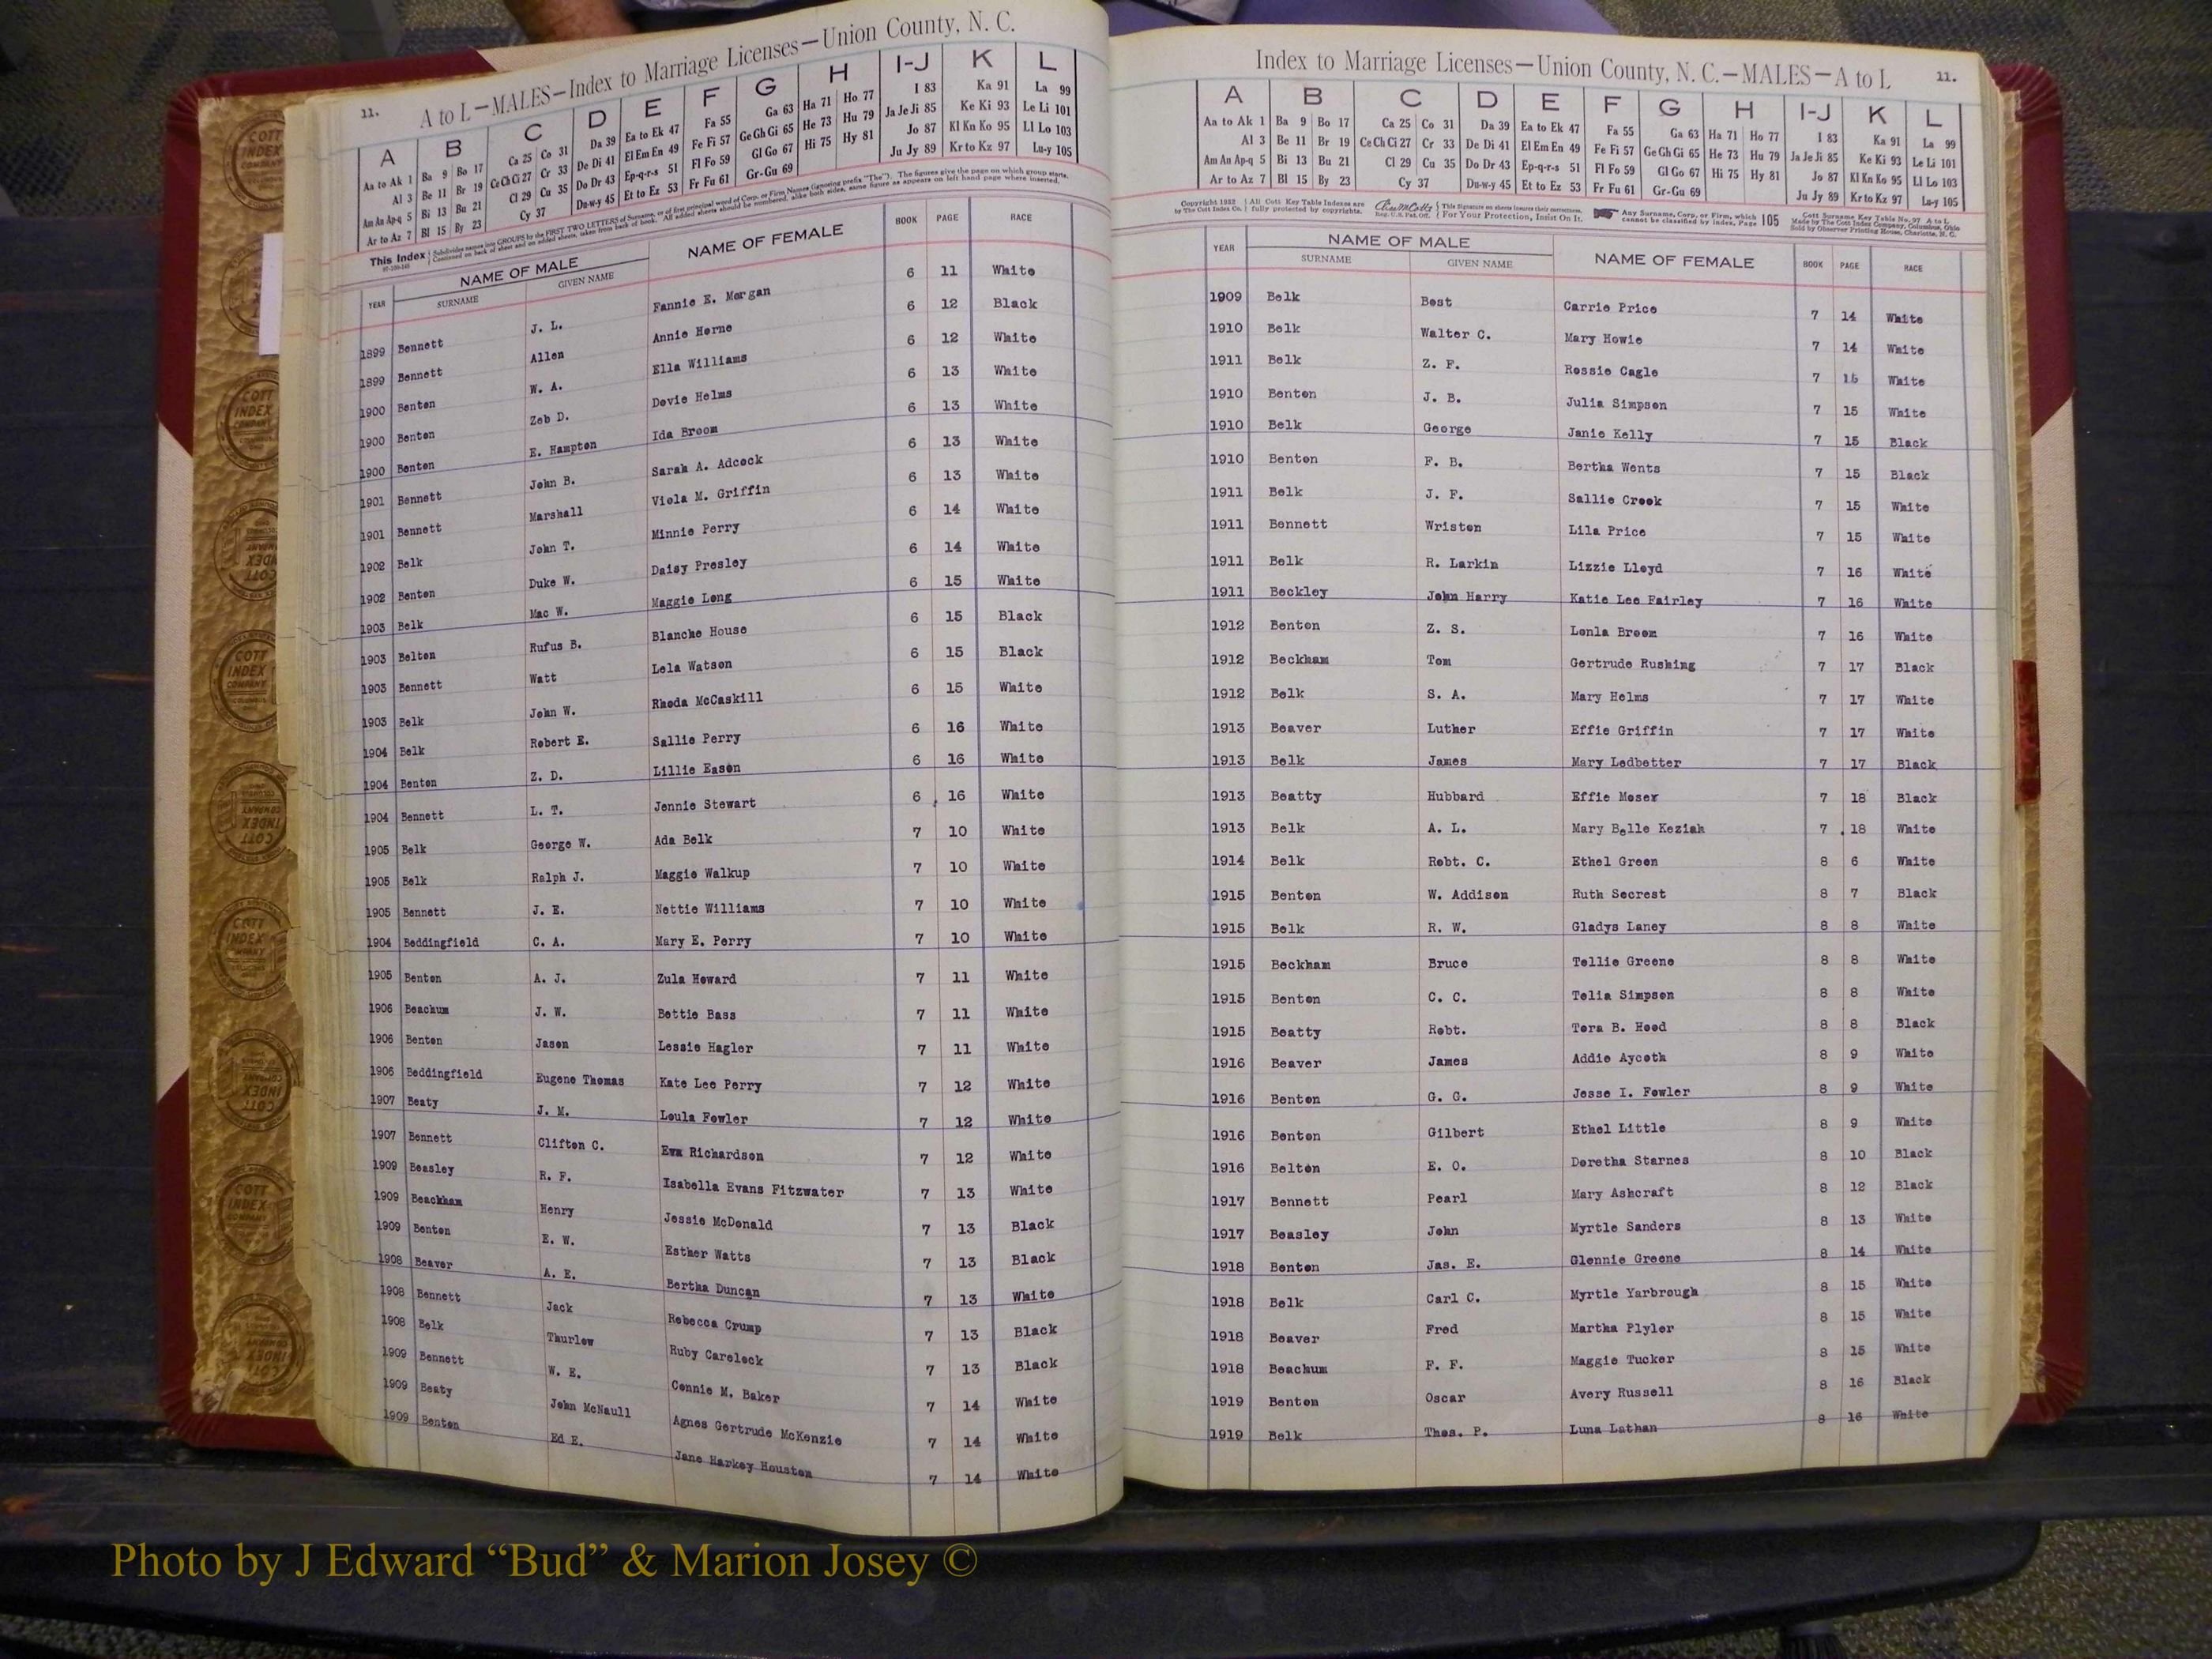 11. A to L—MALES—Index to Marriage Licenses—Union County, N. C.
A B C D E F G H I-J K L
Aa to Ak 1 Ba 9 Bo 17 Ca 25 Co 31 Da 39 Ea to Ek 47 Fa 55 Ga 63 Ha 71 Ho 77 I 83 Ka 91 La 99
Al 3 Be 11 Br 19 Ce Ch Ci 27 Cr 33 De Di 41 El Em En 49 Fe Fi 57 Ge Gh Gi 65 He 73 Hu 79 Ja Je Ji 85 Ke Ki 93 Le Li 101
Am An Ap-q 5 Bi 13 Bu 21 Cl 29 Cu 35 Do Dr 43 Ep-q-r-s 51 Fl Fo 59 Gl Go 67 Hi 75 Hy 81 Jo 87 Kl Kn Ko 95 Ll Lo 103
Ar to Az 7 Bl 15 By 23 Cy 37 Du-w-y 45 Et to Ez 53 Fr Fu 61 Gr-Gu 69 Ju Jy 89 Kr to Kz 97 Lu-y 105
This Index
YEAR NAME OF MALE NAME OF FEMALE BOOK PAGE RACE
SURNAME GIVEN NAME
1899 Bennett J. L. Fannie E. Morgan 6 11 White
1899 Bennett Allen Annie Horne 6 12 Black
1900 Benton W. A. Ella Williams 6 12 White
1900 Benton Zeb D. Dovie Helms 6 13 White
1900 Benton E. Hampton Ida Broom 6 13 White
1901 Bennett John B. Sarah A. Adcock 6 13 White
1901 Bennett Marshall Viola M. Griffin 6 13 White
1902 Belk John T. Minnie Perry 6 14 White
1902 Benton Duke W. Daisy Presley 6 14 White
1903 Belk Mac W. Maggie Long 6 15 White
1903 Belton Rufus B. Blanche House 6 15 Black
1903 Bennett Watt Lela Watson 6 15 Black
1903 Belk John W. Rhoda McCaskill 6 15 White
1904 Belk Robert E. Sallie Perry 6 16 White
1904 Benton Z. D. Lillie Eason 6 16 White
1904 Bennett L. T. Jennie Stewart 6 16 White
1905 Belk George W. Ada Belk 7 10 White
1905 Belk Ralph J. Maggie Walkup 7 10 White
1905 Bennett J. E. Nettie Williams 7 10 White
1904 Beddingfield C. A. Mary E. Perry 7 10 White
1905 Benton A. J. Zula Howard 7 11 White
1906 Beachum J. W. Bettie Bass 7 11 White
1906 Benton Jason Lessie Hagler 7 11 White
1906 Beddingfield Eugene Thomas Kate Lee Perry 7 12 White
1907 Beaty J. M. Loula Fowler 7 12 White
1907 Bennett Clifton C. Eva Richardson 7 12 White
1909 Beasley R. F. Isabella Evans Fitzwater 7 13 White
1909 Beackham Henry Jessie McDonald 7 13 Black
1909 Benton E. W. Esther Watts 7 13 Black
1908 Beaver A. E. Bertha Duncan 7 13 White
1908 Bennett Jack Rebecca Crump 7 13 Black
1908 Belk Thurlow Ruby Carelock 7 13 Black
1909 Bennett W. E. Connie M. Baker 7 14 White
1909 Beaty John McNaull Agnes Gertrude McKenzie 7 14 White
1909 Benton Ed E. Jane Harkey Houston 7 14 White
Index to Marriage Licenses—Union County, N. C.—MALES—A to L 11.
A B C D E F G H I-J K L
Aa to Ak 1 Ba 9 Bo 17 Ca 25 Co 31 Da 39 Ea to Ek 47 Fa 55 Ga 63 Ha 71 Ho 77 I 83 Ka 91 La 99
Al 3 Be 11 Br 19 Ce Ch Ci 27 Cr 33 De Di 41 El Em En 49 Fe Fi 57 Ge Gh Gi 65 He 73 Hu 79 Ja Je Ji 85 Ke Ki 93 Le Li 101
Am An Ap-q 5 Bi 13 Bu 21 Cl 29 Cu 35 Do Dr 43 Ep-q-r-s 51 Fl Fo 59 Gl Go 67 Hi 75 Hy 81 Jo 87 Kl Kn Ko 95 Ll Lo 103
Ar to Az 7 Bl 15 By 23 Cy 37 Du-w-y 45 Et to Ez 53 Fr Fu 61 Gr-Gu 69 Ju Jy 89 Kr to Kz 97 Lu-y 105
For Your Protection, Insist On It. Any Surname, Corp. or Firm, which cannot be classified by index, Page 105
YEAR NAME OF MALE NAME OF FEMALE BOOK PAGE RACE
SURNAME GIVEN NAME
1909 Belk Best Carrie Price 7 14 White
1910 Belk Walter C. Mary Howie 7 14 White
1911 Belk Z. F. Rossie Cagle 7 16 White
1910 Benton J. B. Julia Simpson 7 15 White
1910 Belk George Janie Kelly 7 15 Black
1910 Benton F. B. Bertha Wents 7 15 Black
1911 Belk J. F. Sallie Crook 7 15 White
1911 Bennett Wriston Lila Price 7 15 White
1911 Belk R. Larkin Lizzie Lloyd 7 16 White
1911 Beckley John Harry Katie Lee Fairley 7 16 White
1912 Benton Z. S. Lonla Broom 7 16 White
1912 Beckham Tom Gertrude Rushing 7 17 Black
1912 Belk S. A. Mary Helms 7 17 White
1913 Beaver Luther Effie Griffin 7 17 White
1913 Belk James Mary Ledbetter 7 17 Black
1913 Beatty Hubbard Effie Moser 7 18 Black
1913 Belk A. L. Mary Belle Keziah 7 18 White
1914 Belk Robt. C. Ethel Green 8 6 White
1915 Benton W. Addison Ruth Secrest 8 7 Black
1915 Belk R. W. Gladys Laney 8 8 White
1915 Beckham Bruce Tellie Greene 8 8 White
1915 Benton C. C. Telia Simpson 8 8 White
1915 Beatty Robt. Tora B. Hood 8 8 Black
1916 Beaver James Addie Aycoth 8 9 White
1916 Benton G. G. Jesse I. Fowler 8 9 White
1916 Benton Gilbert Ethel Little 8 9 White
1916 Belton E. O. Doretha Starnes 8 10 Black
1917 Bennett Pearl Mary Ashcraft 8 12 Black
1917 Beasley John Myrtle Sanders 8 13 White
1918 Benton Jas. E. Glennie Greene 8 14 White
1918 Belk Carl C. Myrtle Yarbrough 8 15 White
1918 Beaver Fred Martha Plyler 8 15 White
1918 Beachum F. F. Maggie Tucker 8 15 White
1919 Benton Oscar Avery Russell 8 16 Black
1919 Belk Thos. P. Luna Lathan 8 16 White
COTT INDEX COMPANY
Photo by J Edward “Bud” & Marion Josey ©